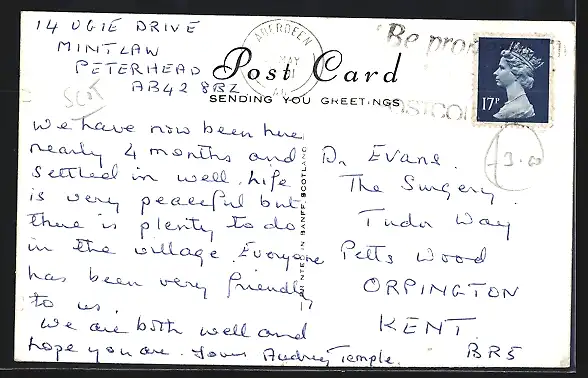 14 UGIE DRIVE
MINTLAW
PETERHEAD
AB42 8BZ
Scot
ABERDEEN
MAY
Be
POSTCO
17P
Post Card
SENDING YOU GREETINGS
3.00
We have now been here
nearly 4 months and
settled in well. Life
is very peaceful but
there is plenty to do
in the village. Everyone
has been very friendly
to us.
We are both well and
hope you are. Yours Audrey Temple.
PRINTED IN BANFF, SCOTLAND
Dr Evans.
The Surgery.
Tudor Way
Petts Wood
ORPINGTON
KENT.
BR5